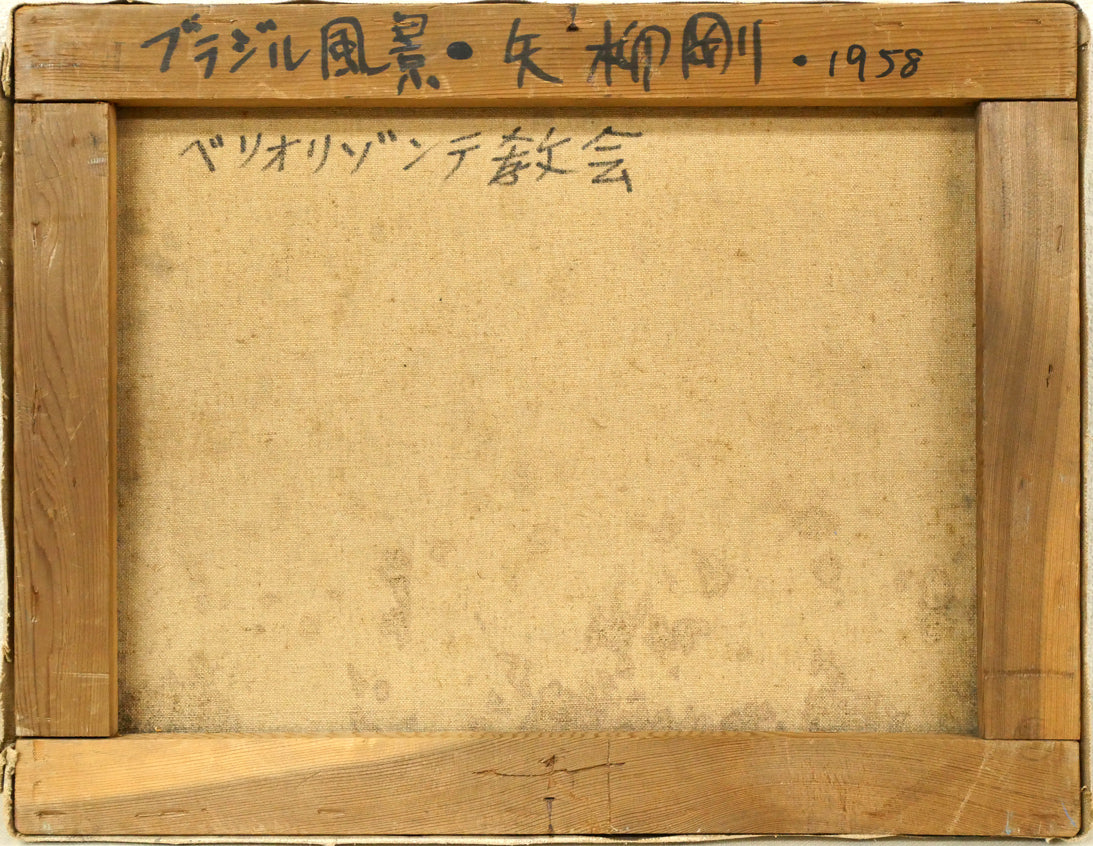 ブラジル風景・矢柳剛・1958
ベリオリゾンテ教会